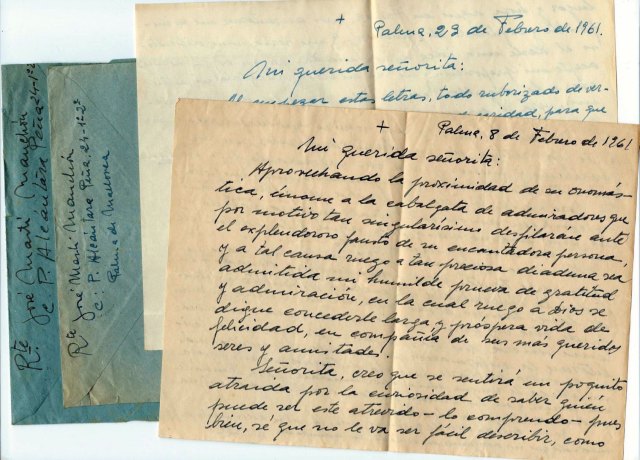 Rte José Martí Manchón
C. P. Alcántara Peña 24-1º 2ª
Rte José Martí Manchón
C. P. Alcántara Peña, 24-1º 2ª
Palma de Mallorca
+
Palma, 23 de Febrero de 1961.
Mi querida señorita:
Al empezar estas letras, todo ruborizado de ver-
para que
+
Palma, 8 de Febrero de 1961
Mi querida señorita:
Aprovechando la proximidad de su onomás-
tica, únome a la cabalgata de admiradores que
por motivo tan singularísimo desfilarán ante
el explendoroso fausto de su encantadora persona,
y a tal causa ruego a tan preciosa diadema sea
admitida mi humilde prueva de gratitud
y admiración, en la cual ruego a Dios se
digne concederle larga y próspera vida de
felicidad, en compañía de sus más queridos
seres y amistades.
Señorita, creo que se sentirá un poquito
atraida por la curiosidad de saber quién
puede ser este atrevido - lo comprendo - pues
bien, sé que no le va ser fácil describir, como